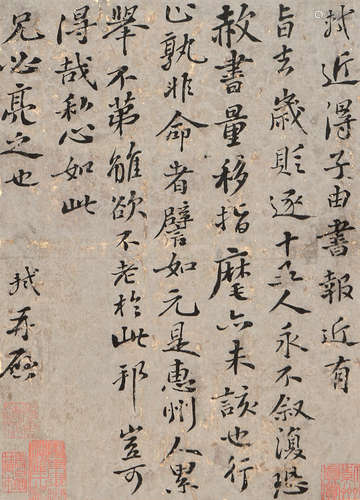 軾近得子由書報近有
旨去歲貶逐十五人永不敘復恐
赦書量移指麾亦未該也行
止孰非命者譬如元是惠州人累
舉不第雖欲不老於此邪豈可
得哉私心如此
兄必亮之也
軾再啟